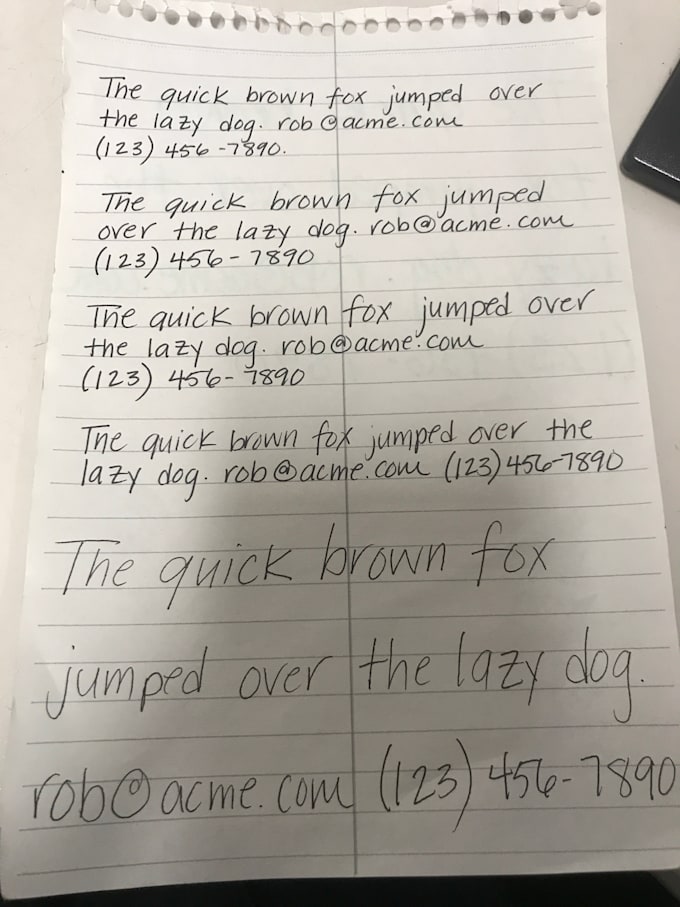 The quick brown fox jumped over
the lazy dog. rob@acme.com
(123) 456-7890.
The quick brown fox jumped
over the lazy dog. rob@acme.com
(123) 456-7890
The quick brown fox jumped over
the lazy dog. rob@acme.com
(123) 456-7890
The quick brown fox jumped over the
lazy dog. rob@acme.com (123) 456-7890
The quick brown fox
jumped over the lazy dog.
rob@acme.com (123) 456-7890